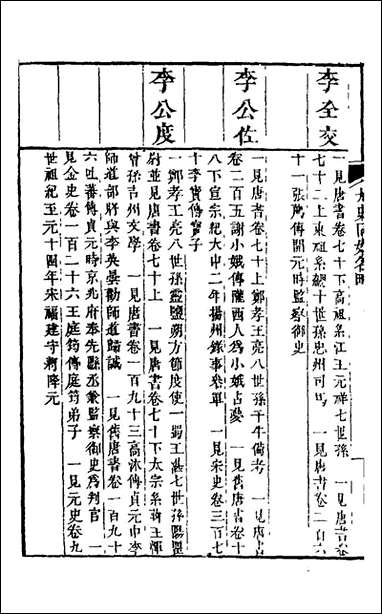 九史同姓名略
李全交
一見唐書卷七十下高祖系江王元祥七世孫 一見唐書卷
七十二上東祖系總十世孫忠州司馬 一見唐書卷二百六
十一張萬傳開元時監察御史
李公佐
一見唐書卷七十上鄭孝王亮八世孫千牛備考 一見唐書
卷二百五謝小娥傳隴西人為小娥占夢 一見舊唐書卷十
八下宣宗紀大中二年揚州錄事參軍 一見宋史卷三百七
十李實傳寶子
李公度
一鄭孝王亮八世孫靈鹽朔方節度使一蜀王湛七世孫陽翟
尉並見唐書卷七十上 一見唐書卷七十下太宗系蔣王惲
曾孫吉州文學 一見唐書卷一百九十三高沐傳貞元中李
師道部將與李英曇勸師道歸誠 一見舊唐書卷一百九十
六吐蕃傳貞元時京兆府奉先縣丞兼監察御史為判官 一
見金史卷一百二十六王庭筠傳庭筠弟子 一見元史卷九
世祖紀至元十四年宋福建守將降元